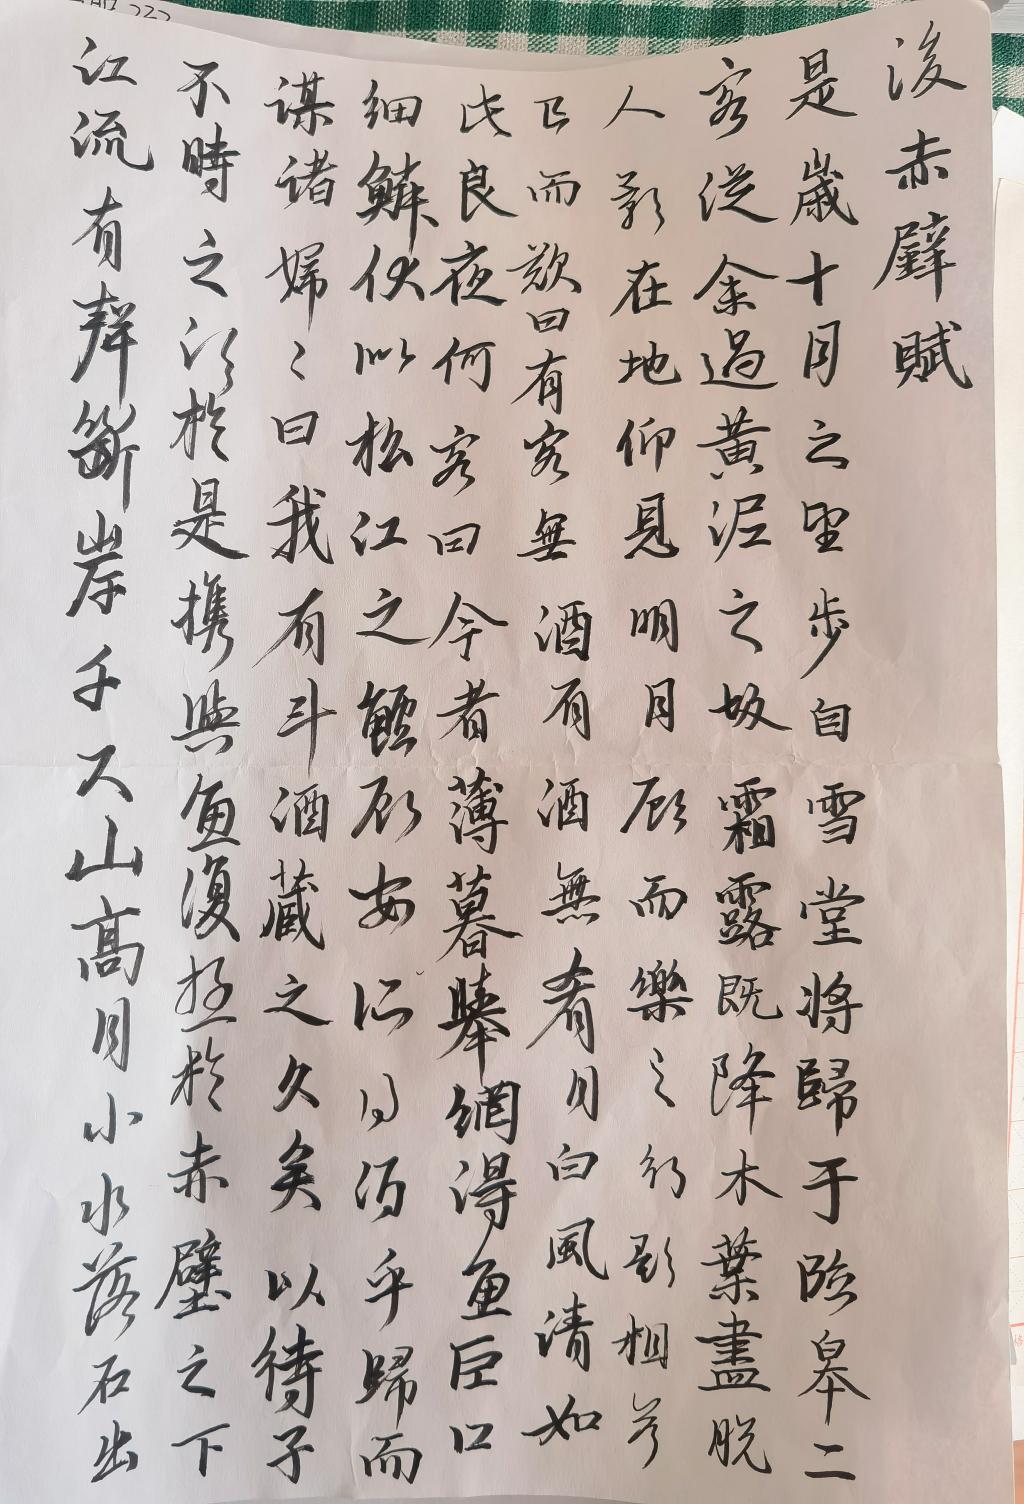 後赤壁賦
是歲十月之望步自雪堂將歸于臨皋二
客從余過黃泥之坂霜露既降木葉盡脫
人影在地仰見明月顧而樂之行歌相答
已而歎曰有客無酒有酒無肴月白風清如
此良夜何客曰今者薄暮舉網得魚巨口
細鱗狀似松江之鱸顧安所得酒乎歸而
謀諸婦〻曰我有斗酒藏之久矣以待子
不時之須於是携與魚復遊於赤壁之下
江流有聲斷岸千尺山高月小水落石出